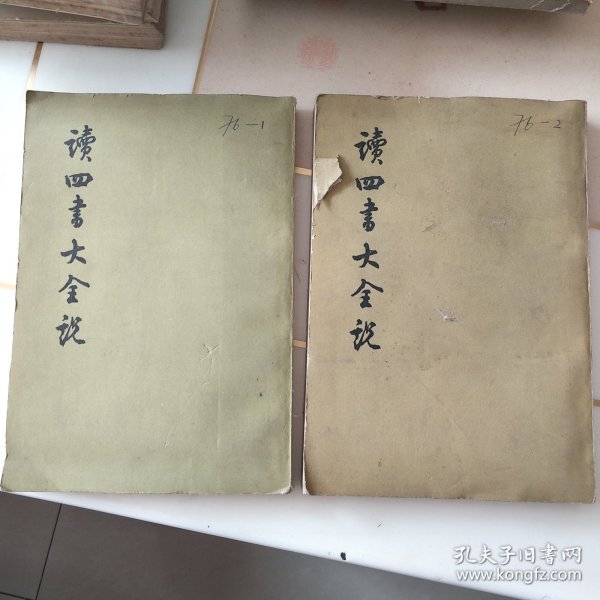 76-1
讀四書大全説
76-2
讀四書大全説
孔夫子旧书网
www.kongfz.com